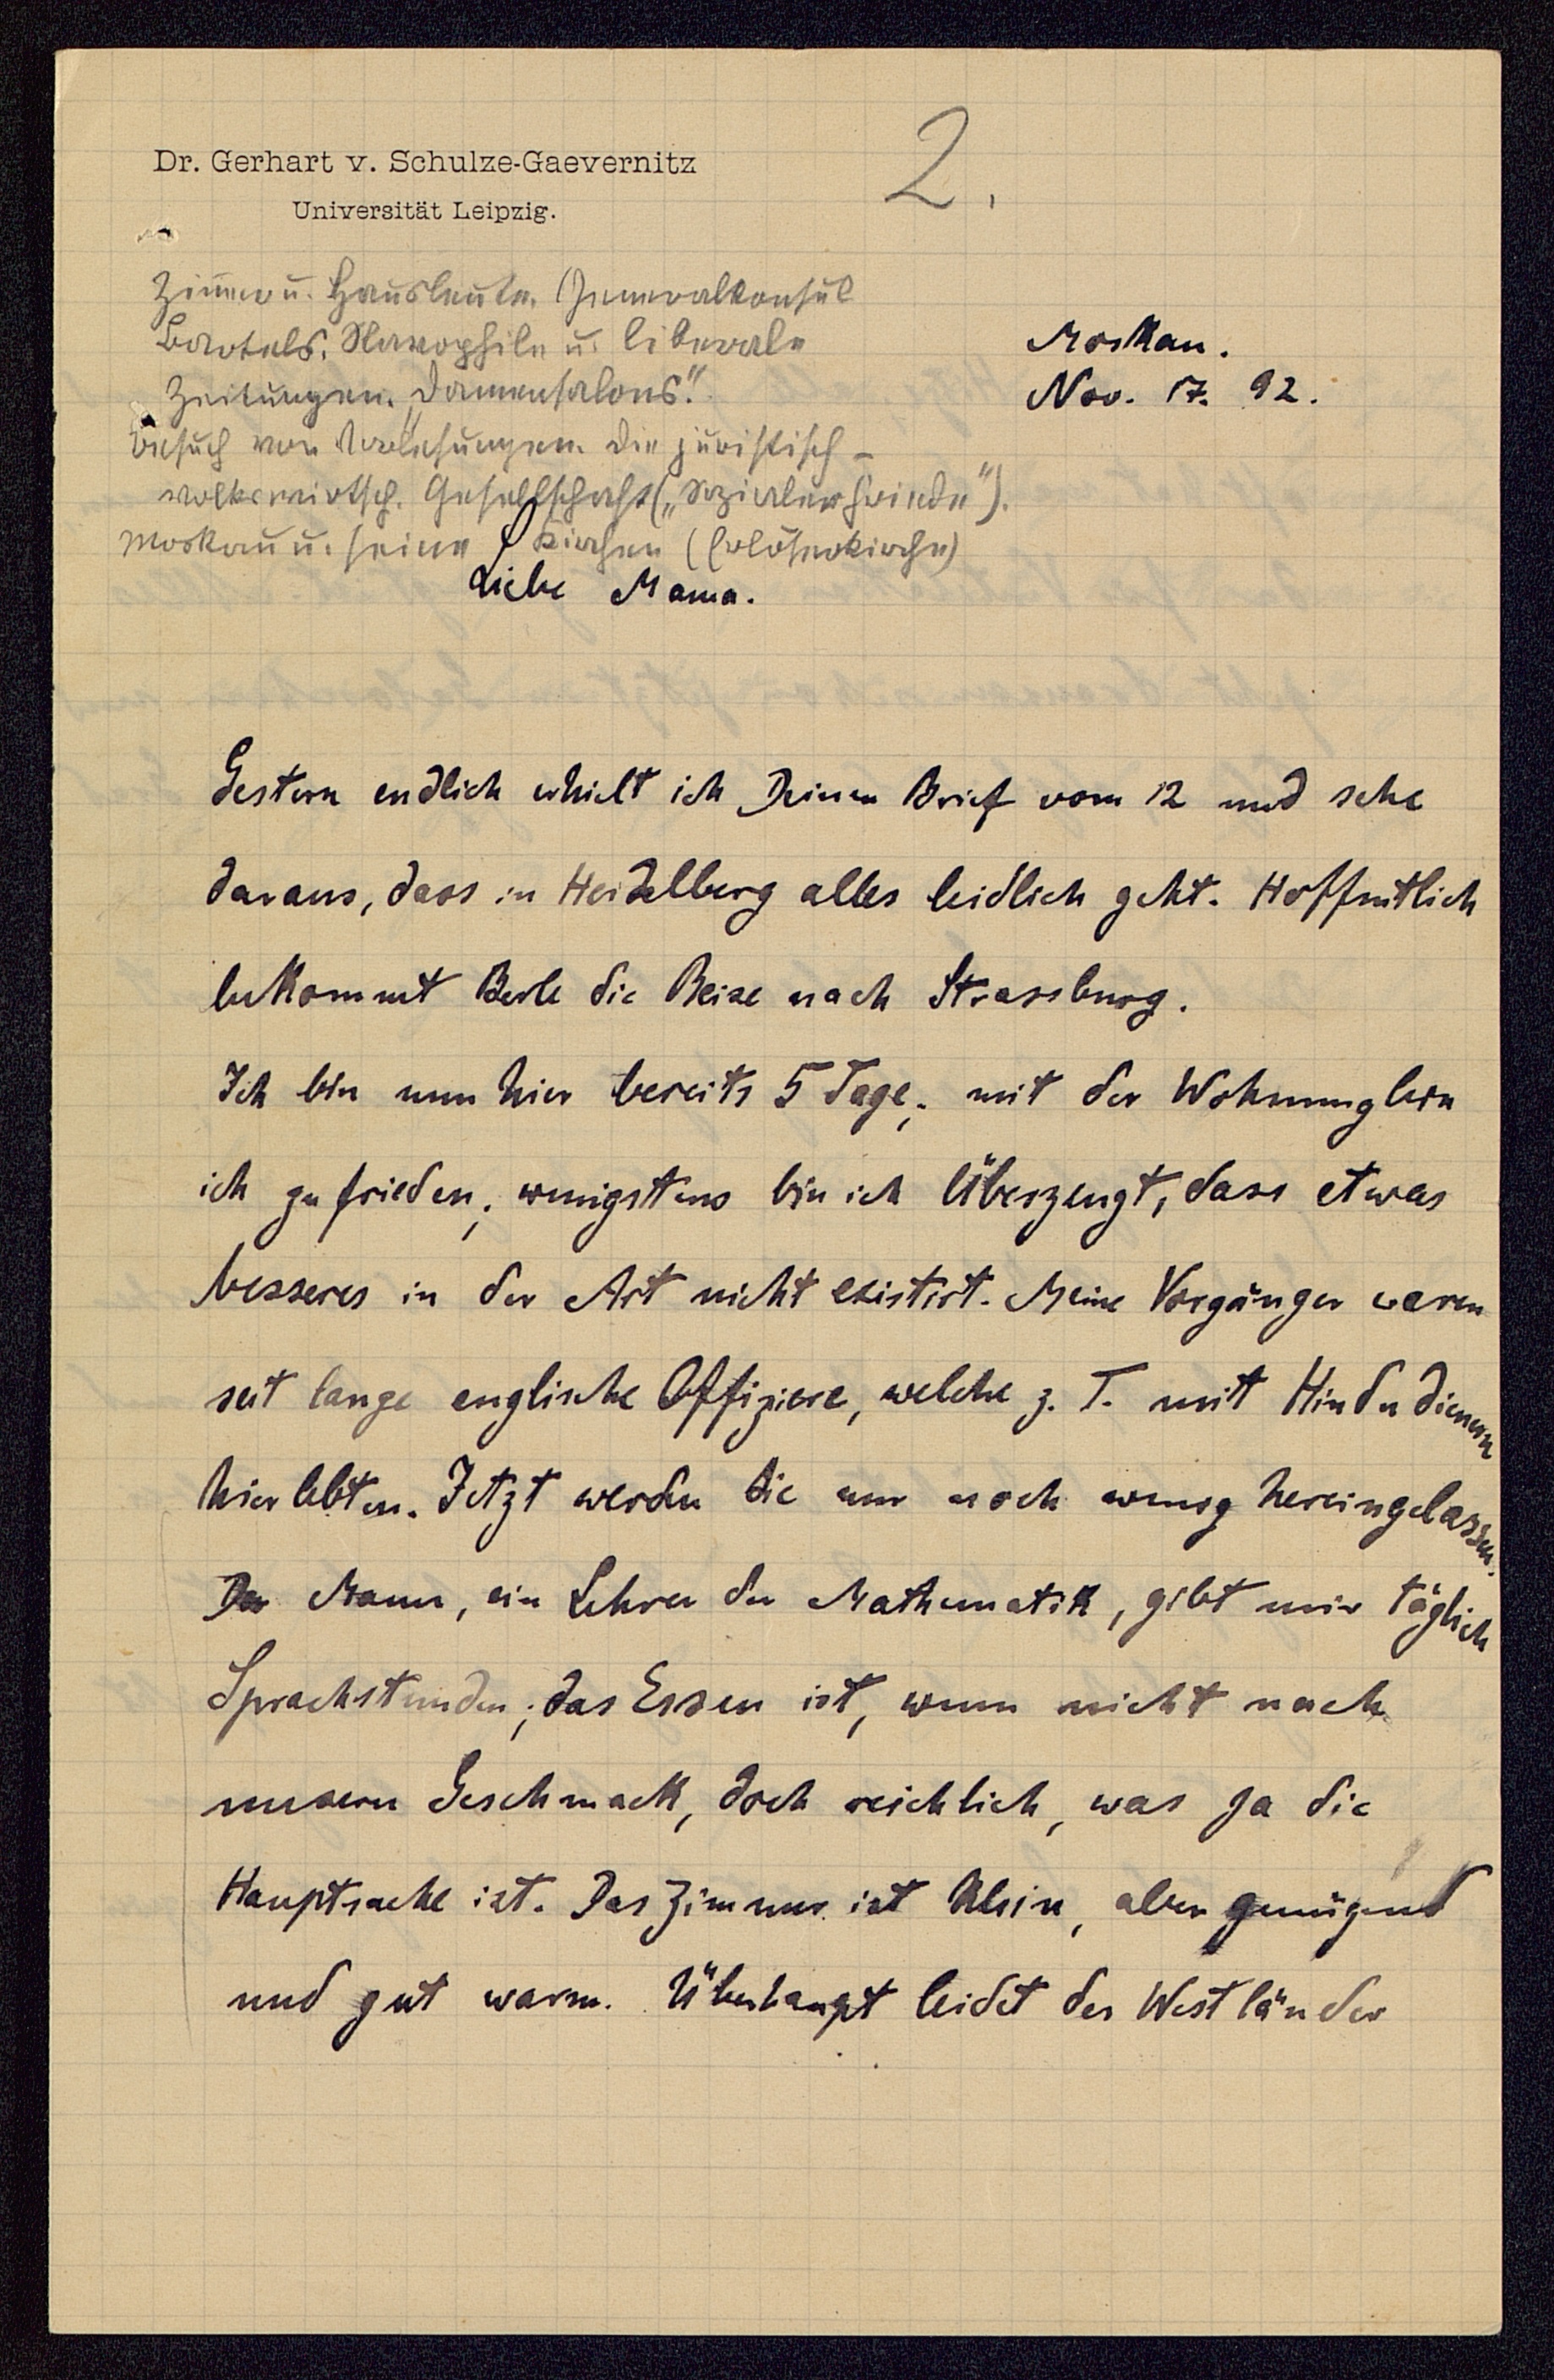 Dr. Gerhart v. Schulze-Gaevernitz
Universität Leipzig.
2.
Zimmer u. Hausleute. Generalkonsul
Bartels. Slavophile u. liberale
Zeitungen. „Damensalons".
Besuch von Vorlesungen. Die juristisch-
volkswirtsch. Gesellschaft („Sozialer Friede").
Moskau u. seine Kirchen (Erlöserkirche)
Moskau.
Nov. 17. 92.
Liebe Mama.
Gestern endlich erhielt ich Deinen Brief vom 12 und sehe
daraus, dass in Heidelberg alles leidlich geht. Hoffentlich
bekommt die Reise nach Strassburg.
Ich bin nun hier bereits 5 Tage; mit der Wohnung bin
ich zufrieden; wenigstens bin ich überzeugt, dass etwas
besseres in der Art nicht existirt. Meine Vorgänger waren
seit lange englische Offiziere, welche z. T. mit Hindu dienern
hier lebten. Jetzt werden die nur noch wenig hereingelassen.
Der Mann, ein Lehrer der Mathematik, gibt mir täglich
Sprachstunden; das Essen ist, wenn nicht nach
unserm Geschmack, doch reichlich, was ja die
Hauptsache ist. Das Zimmer ist klein, aber genügend
und gut warm. Überhaupt leidet der Westländer